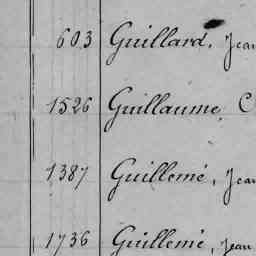 603 Guillard, Jean
1526 Guillaume, C
1387 Guillemé, Jean
1736 Guillemé, Jean